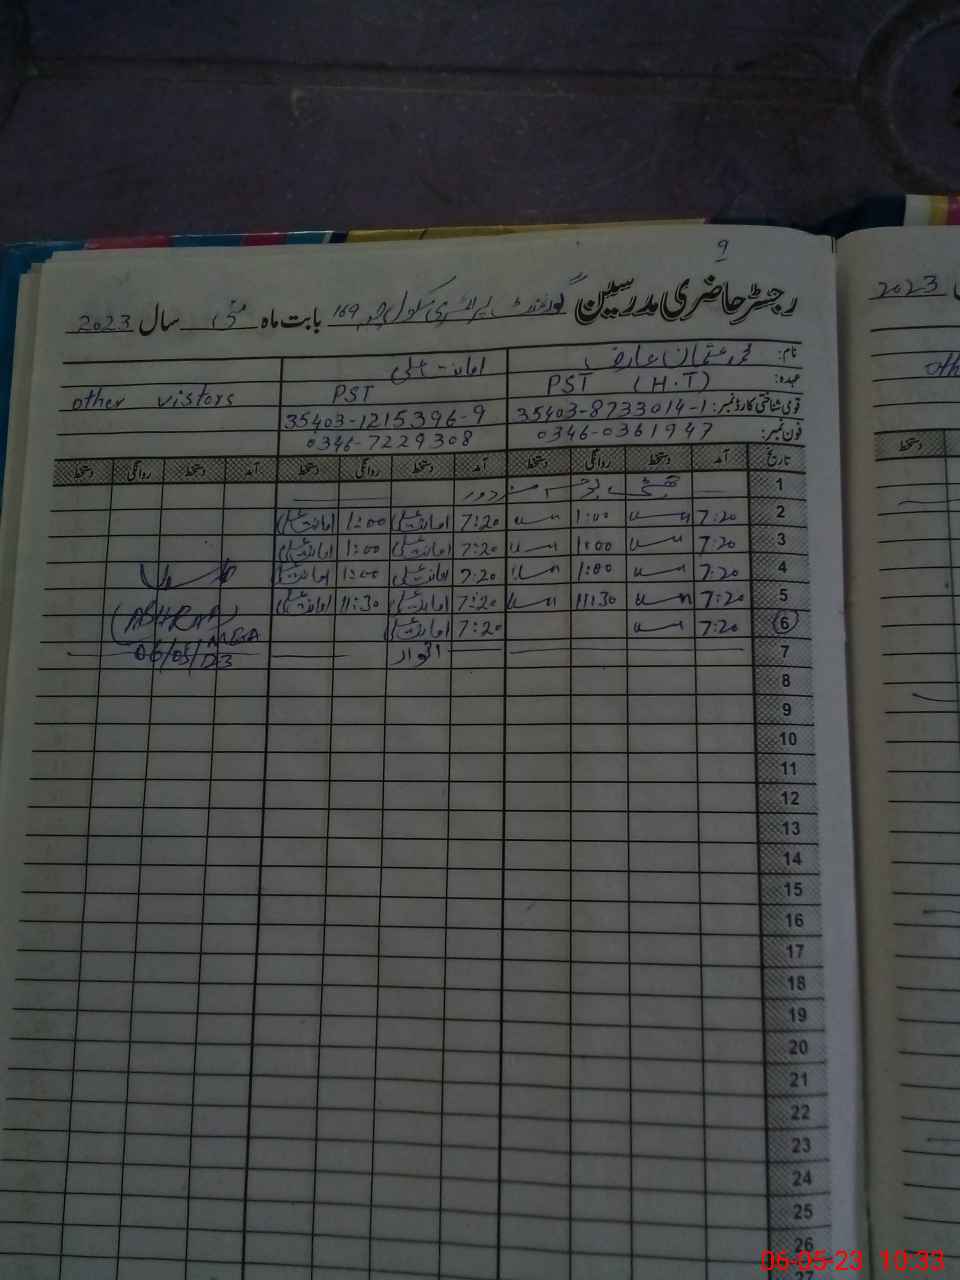 9
رجسٹر حاضری مدرسین گورنمنٹ پرائمری سکول 169 بابت ماہ مئی سال 2023
2023
نام: محمد عثمان عارف امانت علی
عہدہ: PST (H.T) PST other vistors
قومی شناختی کارڈ نمبر: 35403-8733014-1 35403-1215396-9
فون نمبر: 0346-0361947 0346-7229308
تاریخ آمد دستخط روانگی دستخط آمد دستخط روانگی دستخط آمد دستخط روانگی دستخط
دستخط
1 چھٹی یوم مزدور
2 7:20 1:00 7:20 امانت علی 1:00 امانت علی
3 7:20 1:00 7:20 امانت علی 1:00 امانت علی
4 7:20 1:00 7:20 امانت علی 1:00 امانت علی
5 7:20 11:30 7:20 امانت علی 11:30 امانت علی
6 7:20 7:20 امانت علی
MEA
7 اتوار 06/05/23
8
9
10
11
12
13
14
15
16
17
18
19
20
21
22
23
24
25
26
27
06-05-23 10:33